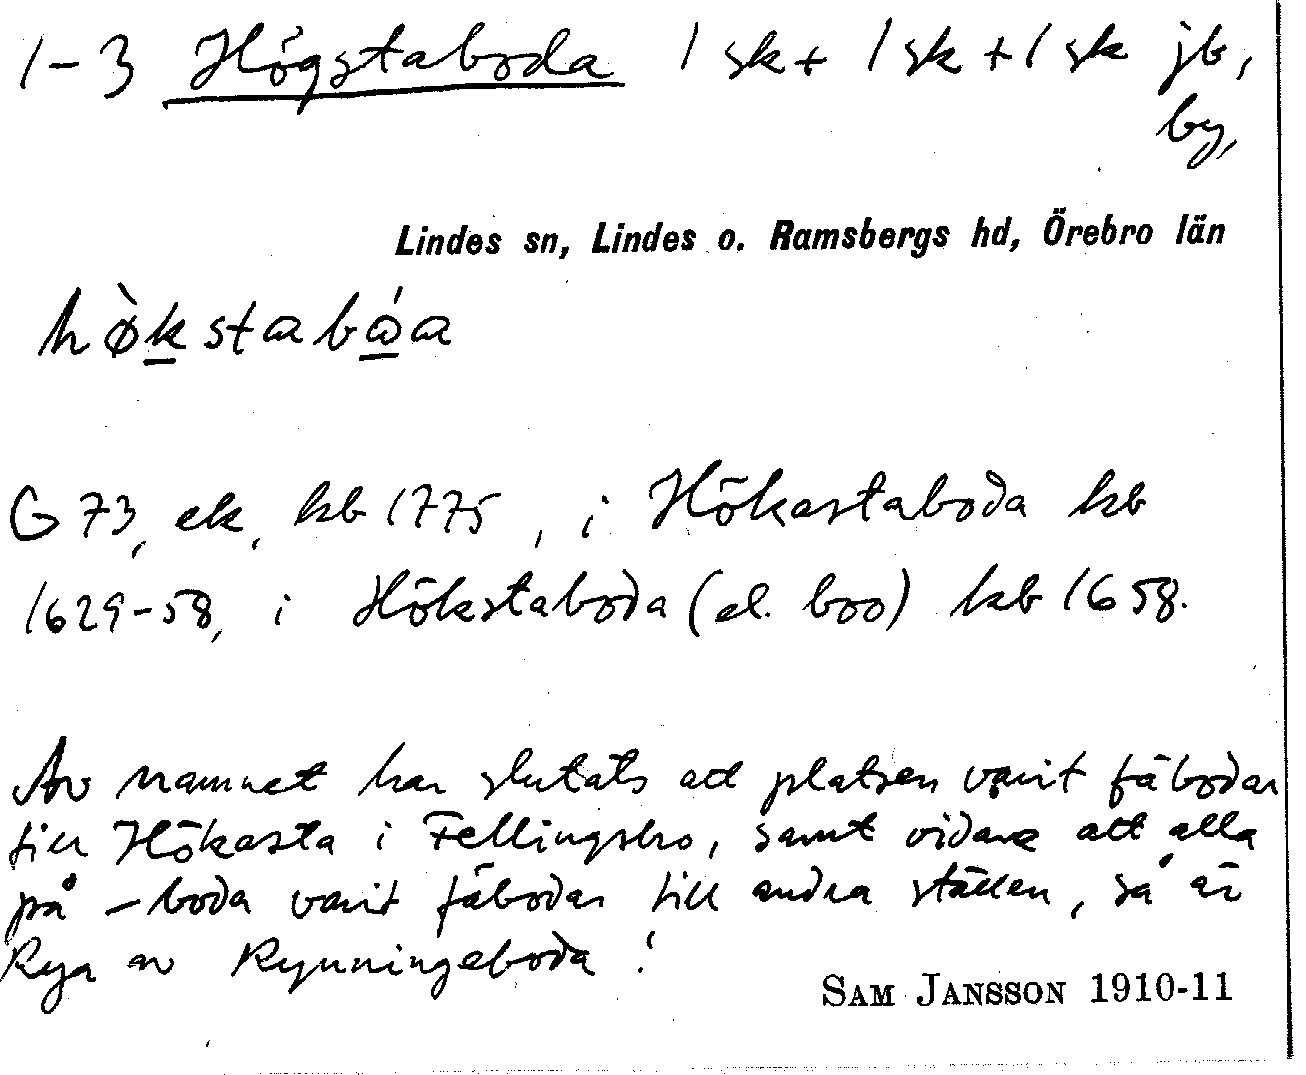 1-3 Högstaboda 1 sk + 1 sk + 1 sk jb,
by,
Lindes sn, Lindes o. Ramsbergs hd, Örebro län
hø̀kstabɷ́a
G 73, ek, kb 1775, i Hökastaboda kb
1629-58, i Hökstaboda (el. boo) kb 1658.
Av namnet har slutats att platsen varit fäbodar
till Hökasta i Fellingsbro, samt vidare att alla
på -boda varit fäbodar till andra ställen, så är
Rya av Rynningeboda!
SAM JANSSON 1910-11